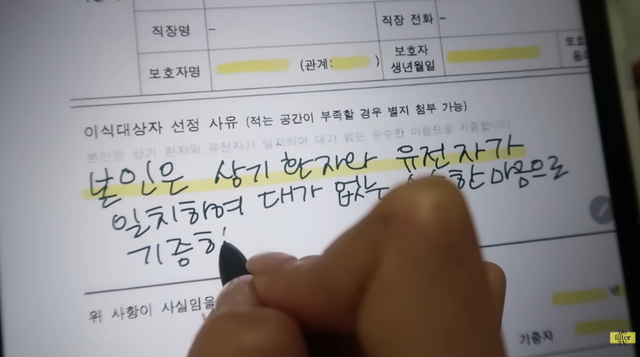 직장명 – 직장 전화 –
보호자명 (관계: ) 보호자 생년월일
이식대상자 선정 사유 (적는 공간이 부족할 경우 별지 첨부 가능)
본인은 상기 환자와 유전자가 일치하여 대가 없는 순수한 마음으로 기증합니다
본인은 상기 환자와 유전자가
일치하여 대가 없는 한 마음으로
기증하
위 사항이 사실임을
년
기증자
filler